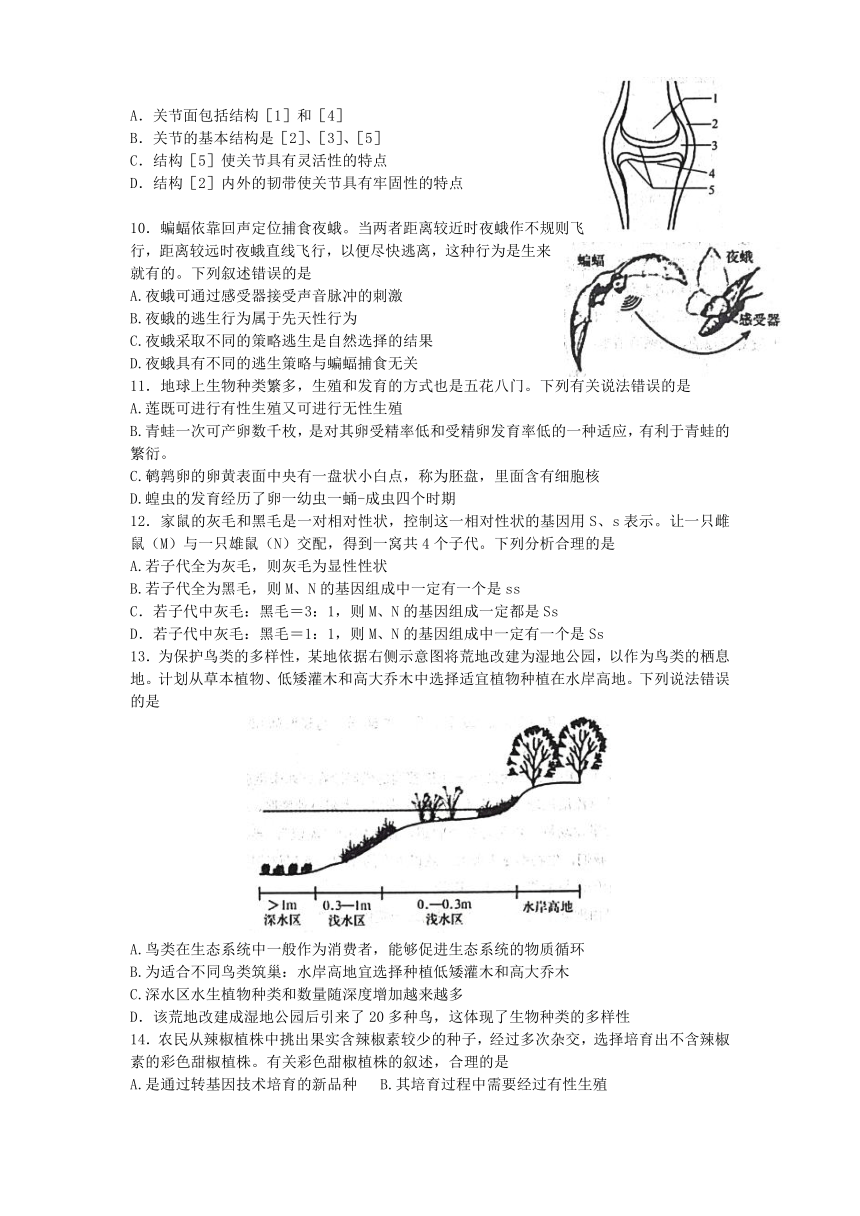 A. 关节面包括结构［1］和［4］
B. 关节的基本结构是［2］、［3］、［5］
C. 结构［5］使关节具有灵活性的特点
D. 结构［2］内外的韧带使关节具有牢固性的特点
1
2
3
4
5
10. 蝙蝠依靠回声定位捕食夜蛾。当两者距离较近时夜蛾作不规则飞
行，距离较远时夜蛾直线飞行，以便尽快逃离，这种行为是生来
就有的。下列叙述错误的是
A.夜蛾可通过感受器接受声音脉冲的刺激
B.夜蛾的逃生行为属于先天性行为
C.夜蛾采取不同的策略逃生是自然选择的结果
D.夜蛾具有不同的逃生策略与蝙蝠捕食无关
蝙蝠
夜蛾
感受器
11. 地球上生物种类繁多，生殖和发育的方式也是五花八门。下列有关说法错误的是
A.莲既可进行有性生殖又可进行无性生殖
B.青蛙一次可产卵数千枚,是对其卵受精率低和受精卵发育率低的一种适应,有利于青蛙的
繁衍。
C.鹌鹑卵的卵黄表面中央有一盘状小白点，称为胚盘，里面含有细胞核
D.蝗虫的发育经历了卵一幼虫一蛹-成虫四个时期
12. 家鼠的灰毛和黑毛是一对相对性状，控制这一相对性状的基因用 S、s 表示。让一只雌
鼠（M）与一只雄鼠（N）交配，得到一窝共 4 个子代。下列分析合理的是
A.若子代全为灰毛，则灰毛为显性性状
B.若子代全为黑毛，则 M、N 的基因组成中一定有一个是 ss
C. 若子代中灰毛：黑毛＝3：1，则 M、N 的基因组成一定都是 Ss
D. 若子代中灰毛：黑毛＝1：1，则 M、N 的基因组成中一定有一个是 Ss
13.为保护鸟类的多样性,某地依据右侧示意图将荒地改建为湿地公园,以作为鸟类的栖息
地。计划从草本植物、低矮灌木和高大乔木中选择适宜植物种植在水岸高地。下列说法错误
的是
>1m 0.3—1m 0.—0.3m 水岸高地
深水区 浅水区 浅水区
A.鸟类在生态系统中一般作为消费者，能够促进生态系统的物质循环
B.为适合不同鸟类筑巢：水岸高地宜选择种植低矮灌木和高大乔木
C.深水区水生植物种类和数量随深度增加越来越多
D. 该荒地改建成湿地公园后引来了 20 多种鸟，这体现了生物种类的多样性
14.农民从辣椒植株中挑出果实含辣椒素较少的种子，经过多次杂交，选择培育出不含辣椒
素的彩色甜椒植株。有关彩色甜椒植株的叙述，合理的是
A.是通过转基因技术培育的新品种 B.其培育过程中需要经过有性生殖